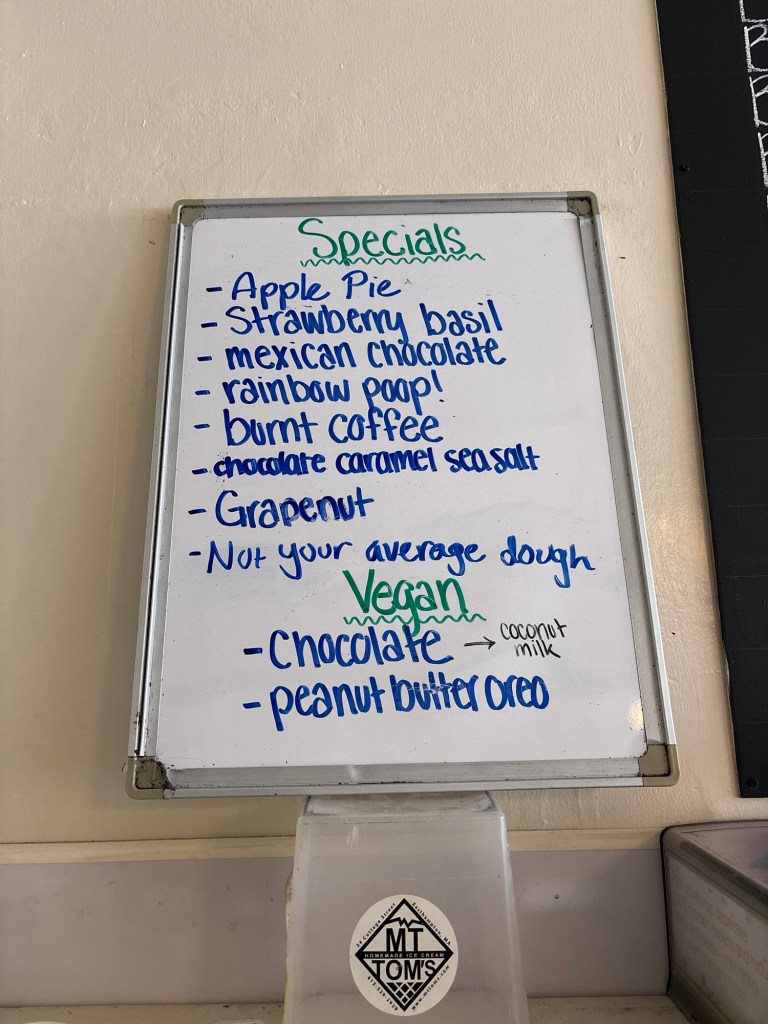 Specials
- Apple Pie
- Strawberry basil
- mexican chocolate
- rainbow poop!
- burnt coffee
- chocolate caramel sea salt
- Grapenut
- Not your average dough
Vegan
- Chocolate → coconut milk
- peanut butter oreo
34 Cottage Street Easthampton, MA
MT
HOMEMADE ICE CREAM
TOM'S
www.mttoms.com